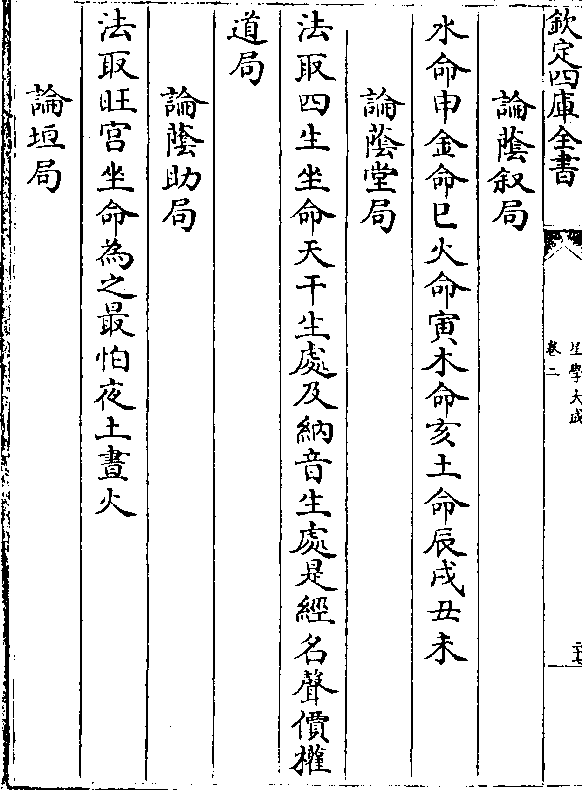 欽定四庫全書
星學大成
卷二
論蔭叙局
水命申金命巳火命寅木命亥土命辰戌丑未
論蔭堂局
法取四生坐命天干生處及納音生處是經名聲價權
道局
論蔭助局
法取旺宫坐命為之最怕夜土晝火
論垣局